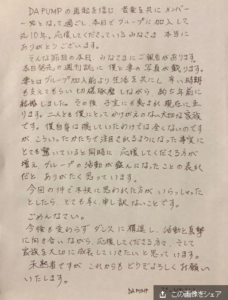 DA PUMPの再起を信じ 音楽を共にメンバー
一丸となって過ごし 本日でグループに加入して
10年。応援してくださっているみなさま 本当に
ありがとうございます。
そんな節目の本日、みなさまにご報告があります。
本日発売の週刊誌に 僕と妻の写真が載ります。
妻とはグループ加入前より生活を共にし 辛い時期
を支えてもらい 約5年前に
結婚しました。その後 子宝にも恵まれ 現在に至
ります。二人とも僕にとってかけがえのない大切な家族
です。僕自身は隠していたわけでは全くないのです
が こういったかたちで注目されるようになった事実に
とても驚いていると同時に 応援してくださる方が
増え グループの活動が盛んになったことの表れ
だと ありがたく思っています。
今回の件で不快に思われた方が いらっしゃった
としたら とても申し訳ないことです。
ごめんなさい。
今後も変わらず ダンスに精進し 活動と真摯
に向き合いながら 応援してくださる方、そして
家族を大切に成長していきたいと思っています。
未熟者ですが これからも どうぞよろしくお願い
いたします。
DA PUMP
この画像をシェア